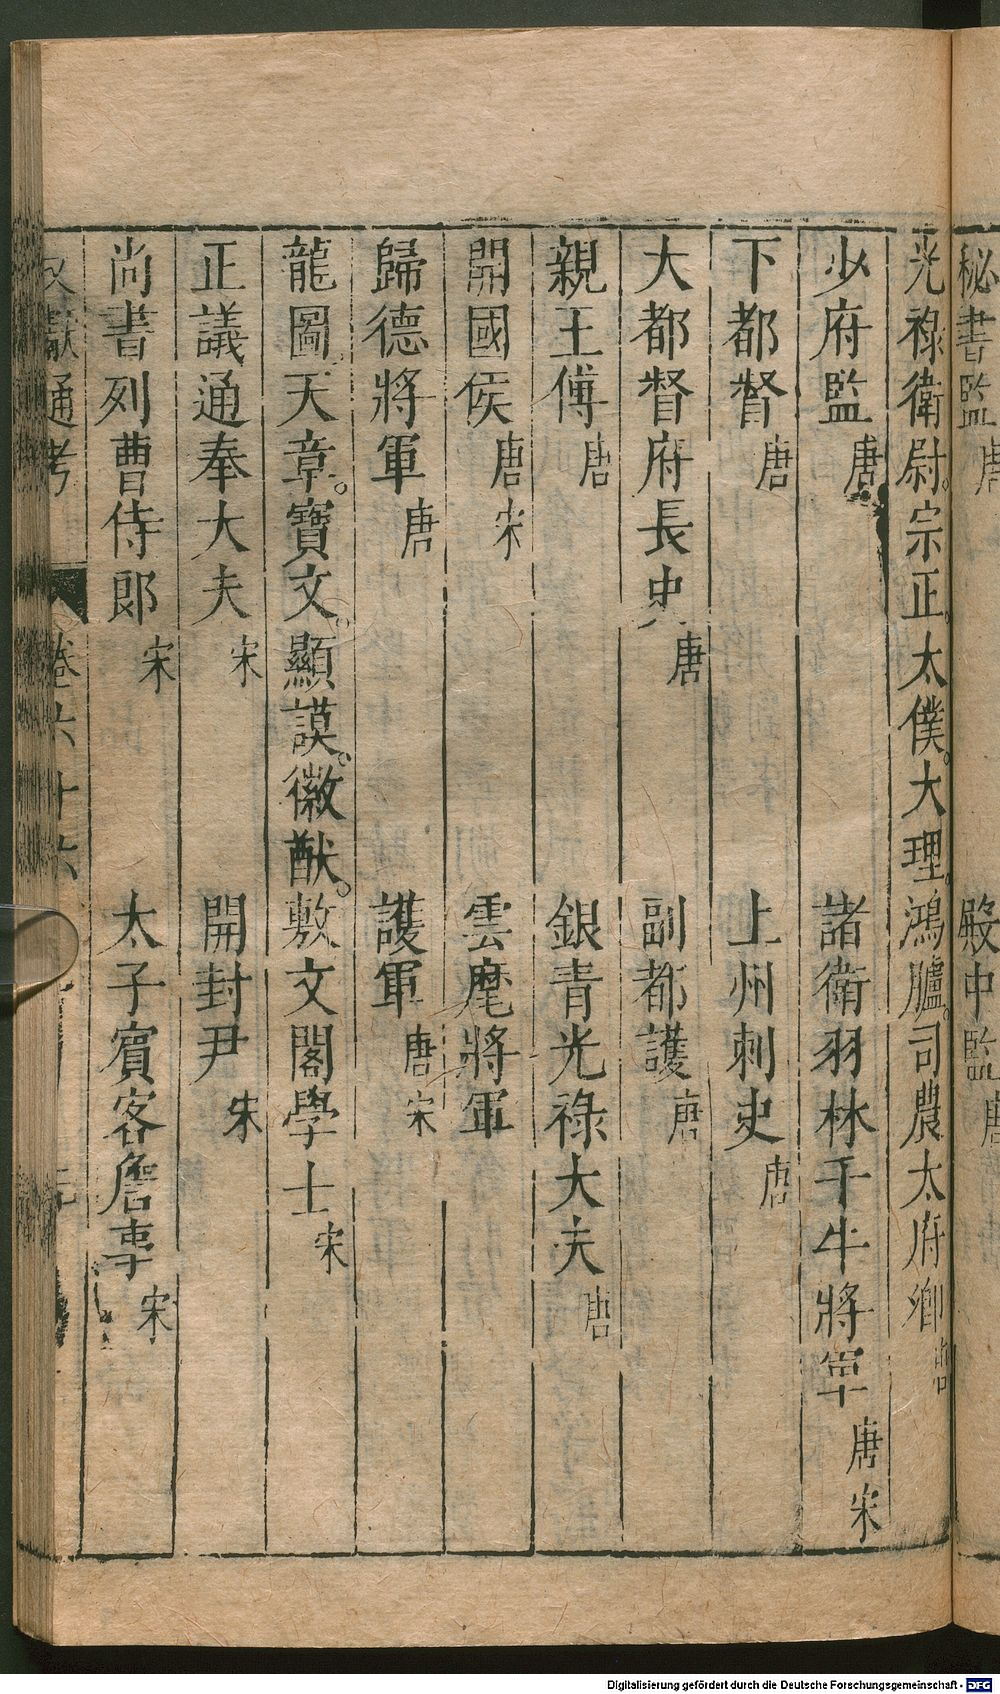 秘書監唐　殿中監唐
光祿衛尉。宗正。太僕。大理。鴻臚。司農太府卿唐
少府監唐　諸衛羽林千牛將軍唐宋
下都督唐　上州刺史唐
大都督府長史唐　副都護唐
親王傅唐　銀青光祿大夫唐
開國侯唐宋　雲麾將軍
歸德將軍唐　護軍唐宋
龍圖天章。寶文。顯謨。徽猷。敷文閣學士宋
正議通奉大夫宋　開封尹宋
尚書列曹侍郎宋　太子賓客詹事宋
文獻通考　卷六十六
Digitalisierung gefördert durch die Deutsche Forschungsgemeinschaft - DFG